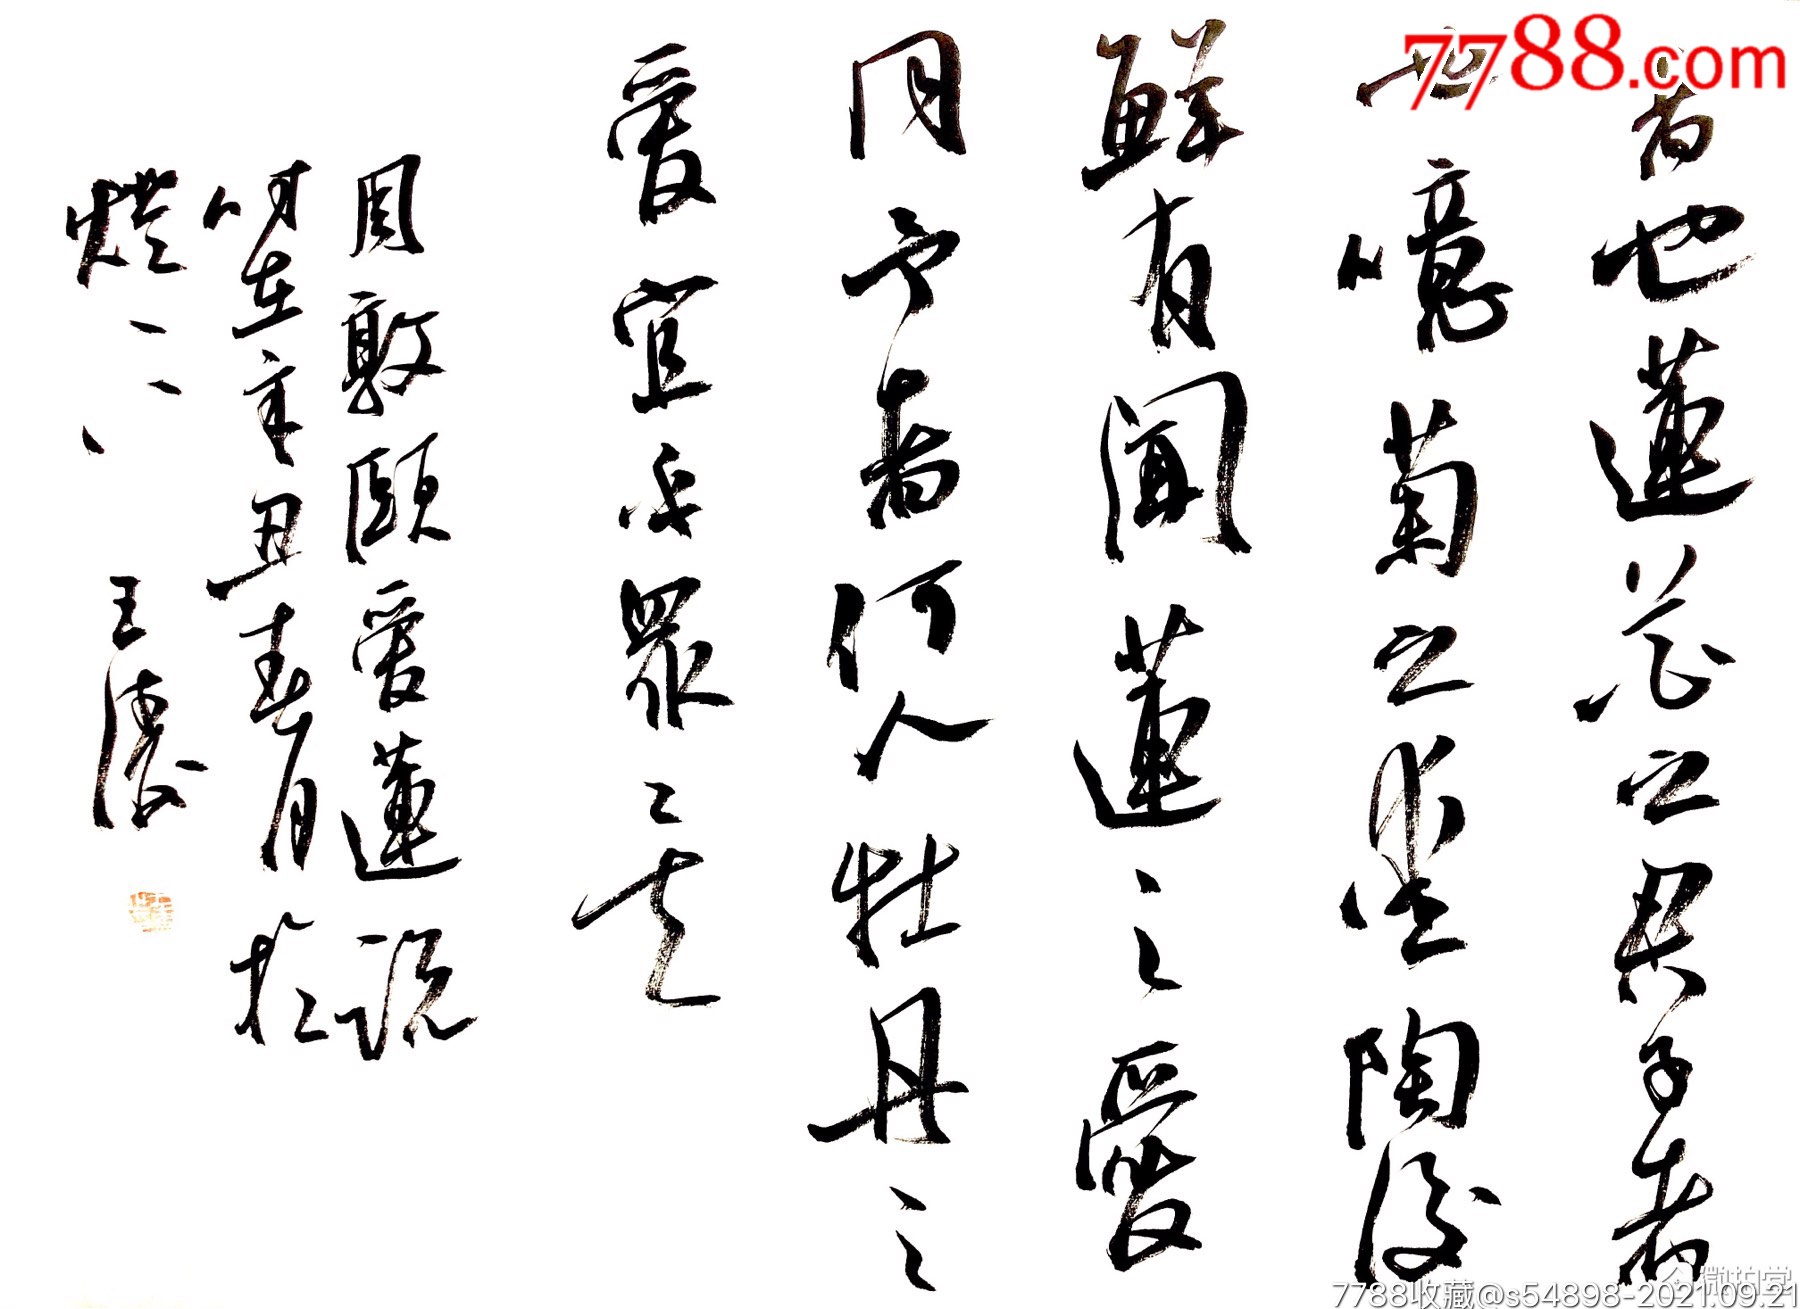 者也蓮花之君子者
也噫菊之愛陶後
鮮有聞蓮之愛
同予者何人牡丹之
愛宜乎眾矣
周敦頤愛蓮說
時在辛丑春月於
燈下 王
7788.com
微拍堂
7788收藏@s54898-2021.09.21